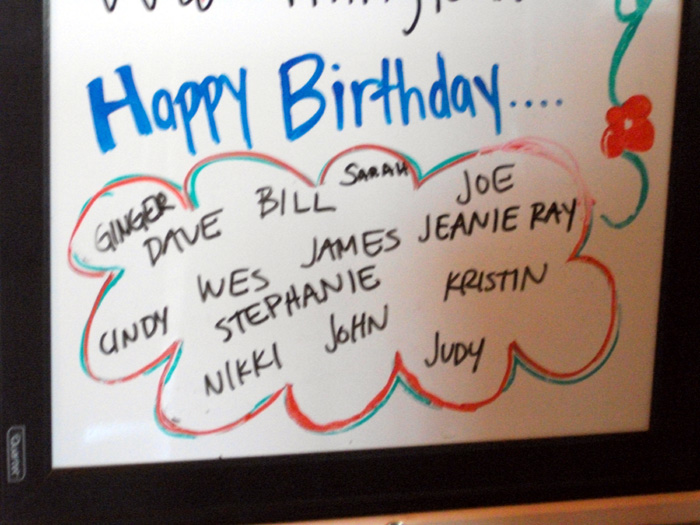 Happy Birthday....
SARAH
GINGER
DAVE BILL JOE
JAMES JEANIE RAY
WES
STEPHANIE KRISTIN
CINDY
JOHN
NIKKI JUDY
Quartet